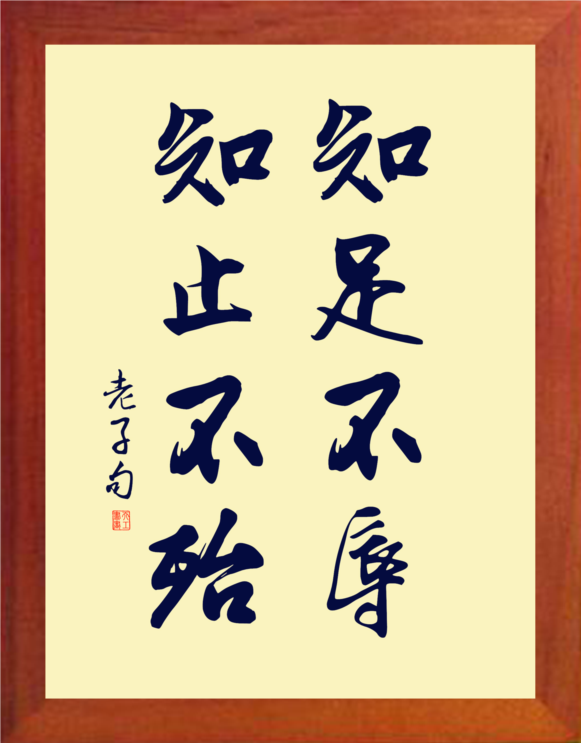 知足不辱
知止不殆
老子句